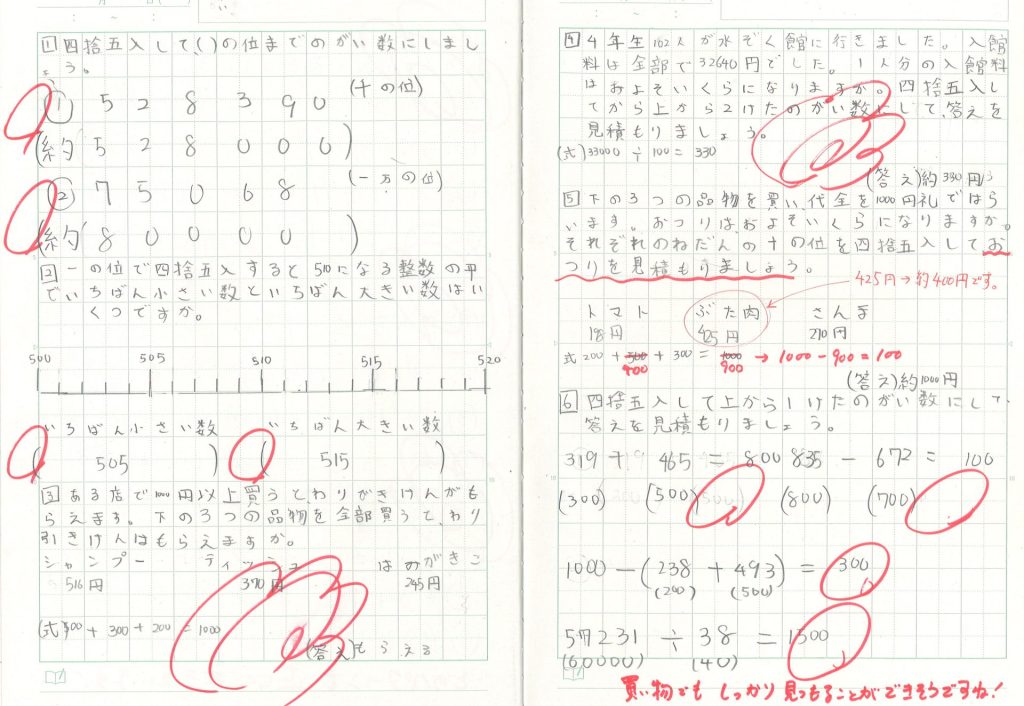 1 四捨五入して、( )の位までのがい数にしまし
ょう。
① 528390 (千の位)
(約528000)
② 75068 (一万の位)
(約80000)
2 一の位で四捨五入すると510になる整数の中
でいちばん小さい数といちばん大きい数はい
くつですか。
500 505 510 515 520
いちばん小さい数 いちばん大きい数
( 505 ) ( 515 )
3 ある店で1000円以上買うとわりびきけんがも
らえます。下の3つの品物を全部買うと、わり
引きけんはもらえますか。
シャンプー ティッシュ はみがきこ
516円 370円 245円
(式)500+300+200=1000
(答え)もらえる
4 4年生102人が水ぞく館に行きました。入館
料は全部で32640円でした。1人分の入館料
はおよそいくらになりますか。四捨五入し
てから上から2けたのがい数にして、答えを
見積もりましょう。
(式)33000÷100=330
(答え)約330円
5 下の3つの品物を買い、代金を1000円札ではら
います。おつりはおよそいくらになりますか。
それぞれのねだんの十の位を四捨五入してお
つりを見積もりましょう。
425円→約400円です。
トマト ぶた肉 さんま
198円 425円 270円
式200+500+300=1000 → 1000-900=100
400 900
(答え)約1000円
6 四捨五入して上から1けたのがい数にして、
答えを見積もりましょう。
319+465=800 835-672=100
(300) (500) (800) (700)
1000-(238+493)=300
(200) (500)
57231÷38=1500
(60000) (40)
買い物でもしっかり見つもることができそうですね!